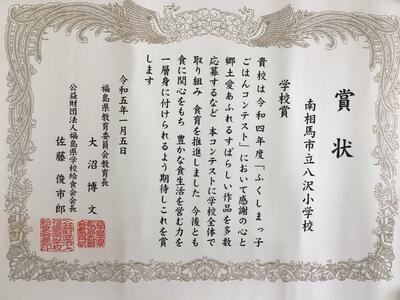 賞状
南相馬市立八沢小学校
学校賞
貴校は令和四年度「ふくしまっ子
ごはんコンテスト」において感謝の心と
郷土愛あふれるすばらしい作品を多数
応募するなど 本コンテストに学校全体で
取り組み 食育を推進しました 今後とも
食に関心をもち 豊かな食生活を営む力を
一層身に付けられるよう期待しこれを賞
します
令和五年一月五日
福島県教育委員会教育長
大沼博文
公益財団法人福島県学校給食会会長
佐藤俊市郎